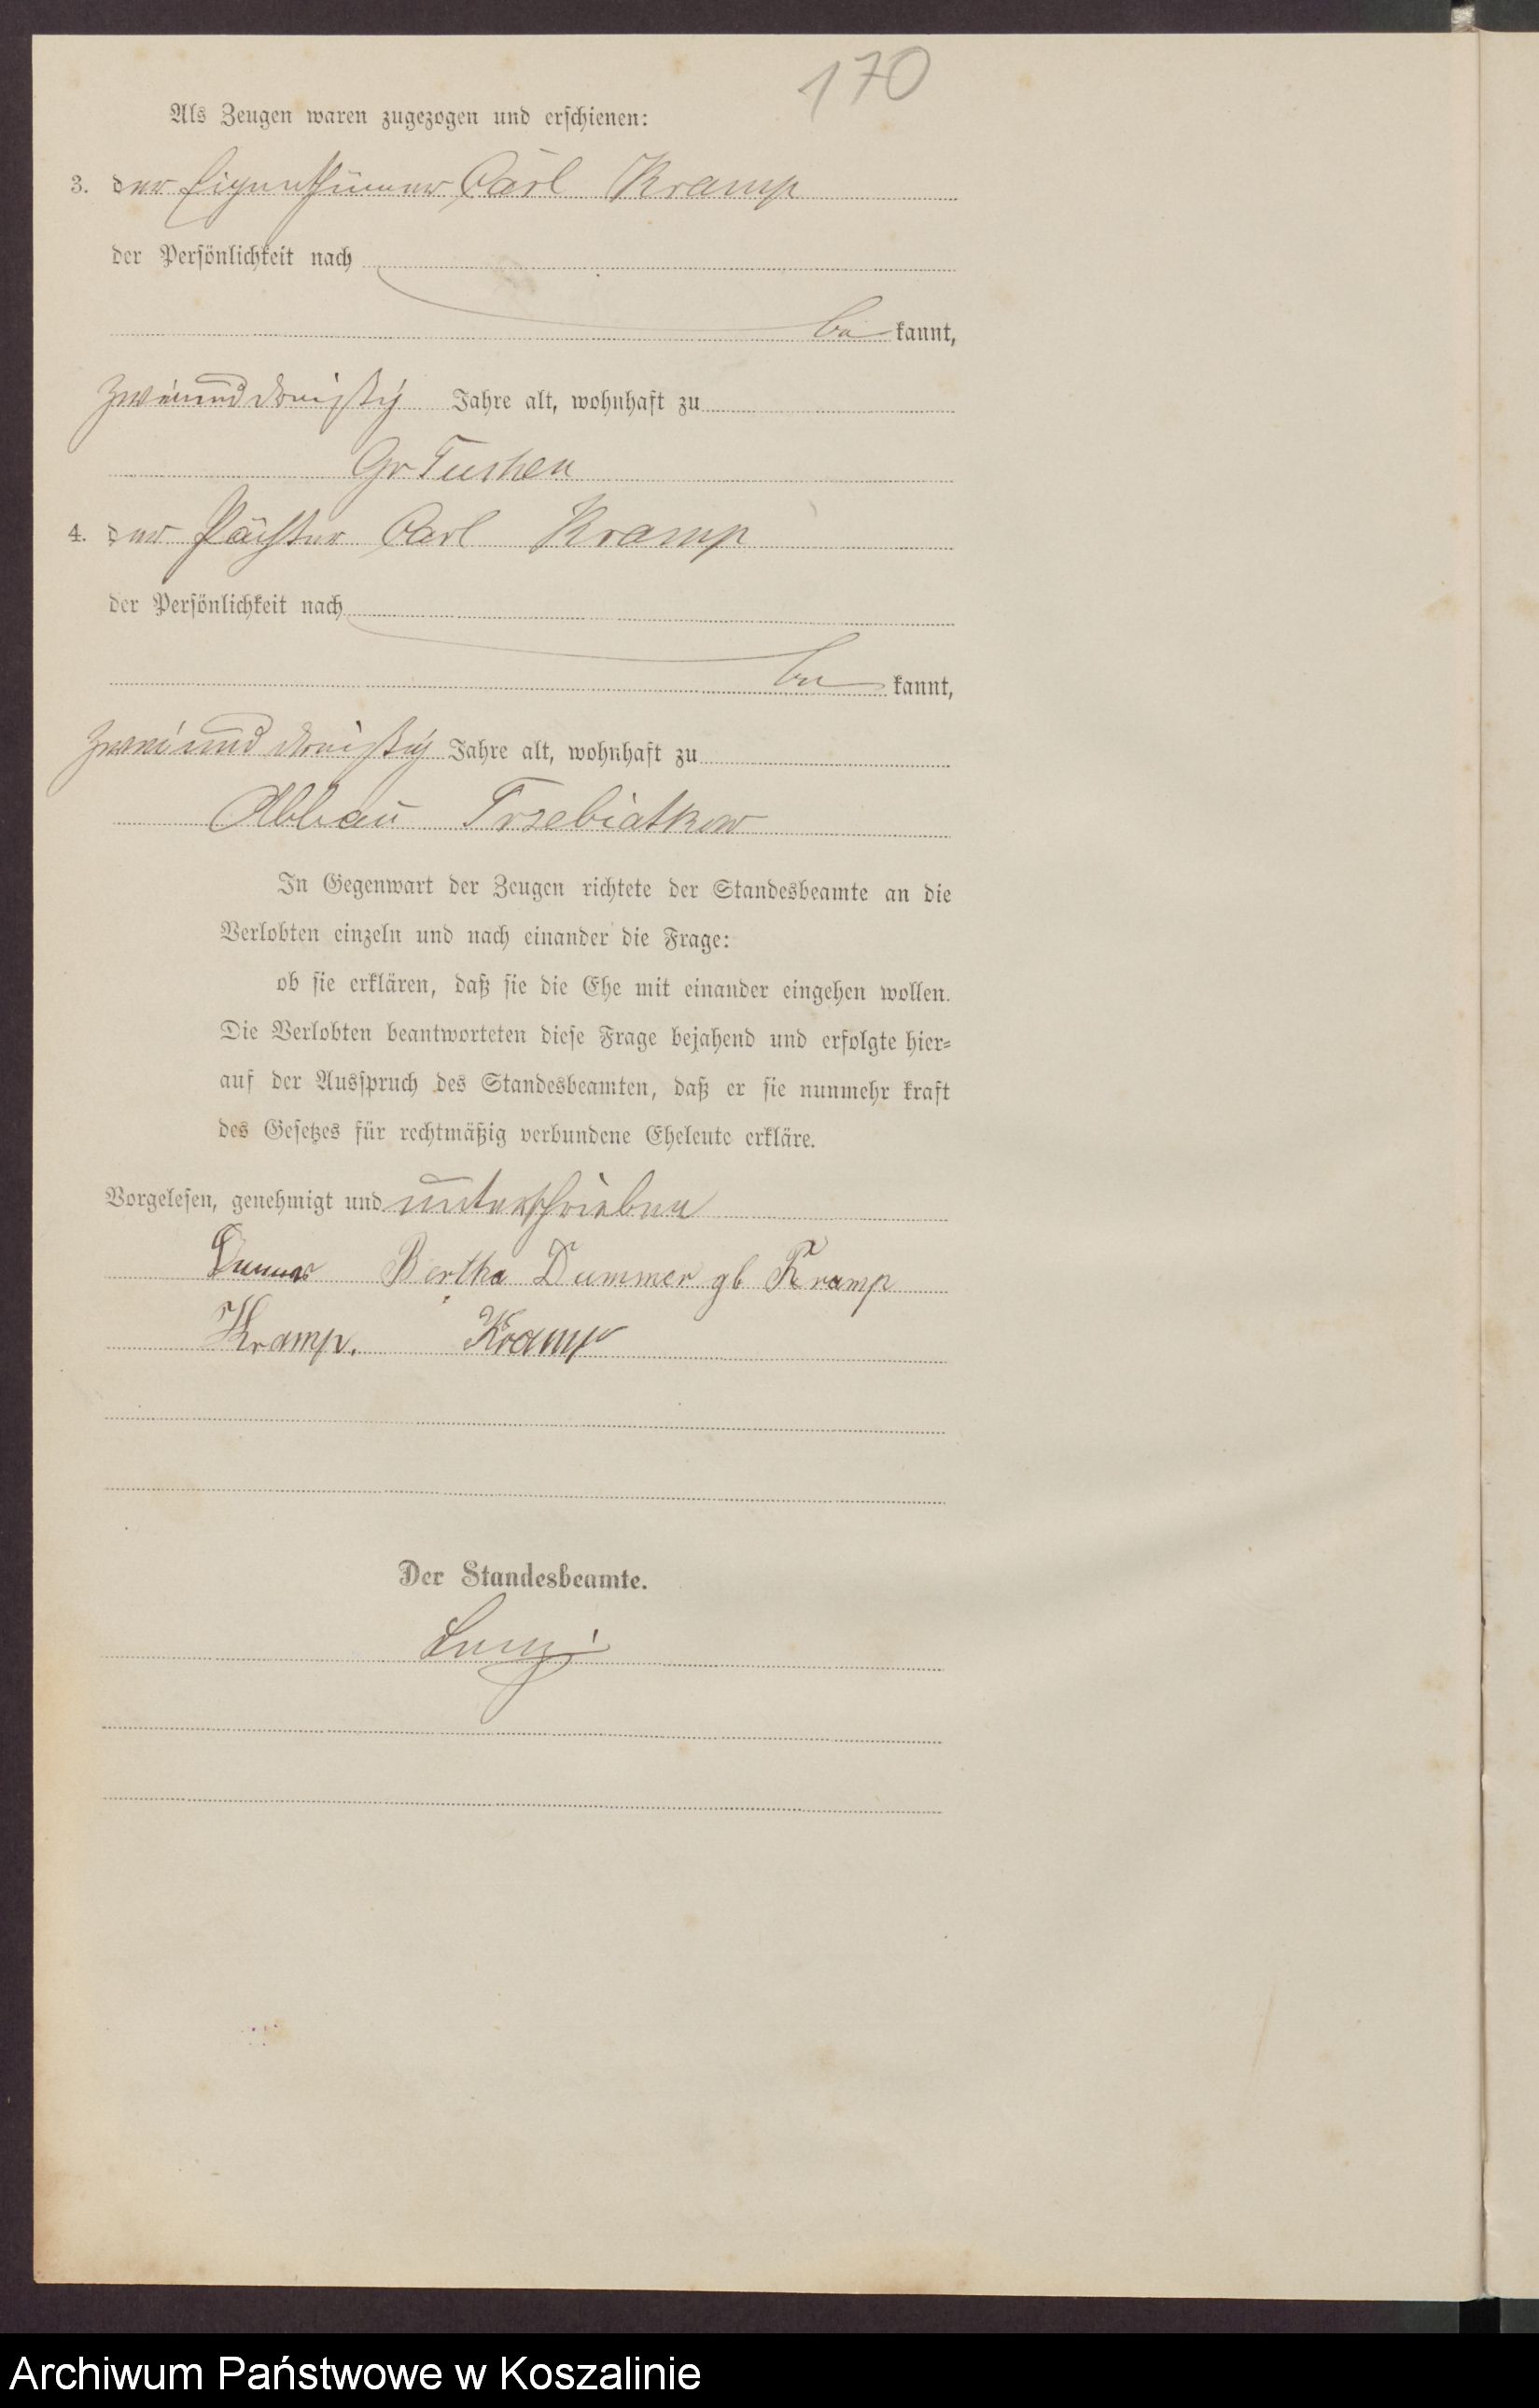 170
Als Zeugen waren zugezogen und erschienen:
3. der Eigenthümer Carl Kramp
der Persönlichkeit nach
be kannt,
zweiunddreißig Jahre alt, wohnhaft zu
Gr Tuchen
4. der Pächter Carl Kramp
der Persönlichkeit nach
be kannt,
zweiunddreißig Jahre alt, wohnhaft zu
Abbau Trzebiatkow
In Gegenwart der Zeugen richtete der Standesbeamte an die
Verlobten einzeln und nach einander die Frage:
ob sie erklären, daß sie die Ehe mit einander eingehen wollen.
Die Verlobten beantworteten diese Frage bejahend und erfolgte hier=
auf der Ausspruch des Standesbeamten, daß er sie nunmehr kraft
des Gesetzes für rechtmäßig verbundene Eheleute erkläre.
Vorgelesen, genehmigt und unterschrieben
Dummer Bertha Dummer gb Kramp
Kramp. Kramp
Der Standesbeamte.
Archiwum Państwowe w Koszalinie